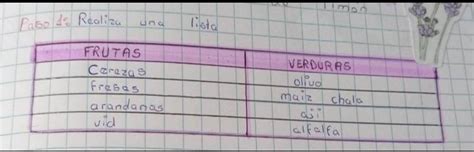 limon
Paso 1: Realiza una lista
FRUTAS VERDURAS
Cerezas olivo
fresas maiz chala
arandanas aji
vid alfalfa